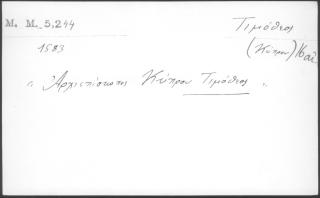 M. M. 5,244
Τιμόθεος
1583
(Κύπρου) 16 αἰ.
„ Ἀρχιεπίσκοπος Κύπρου Τιμόθεος „